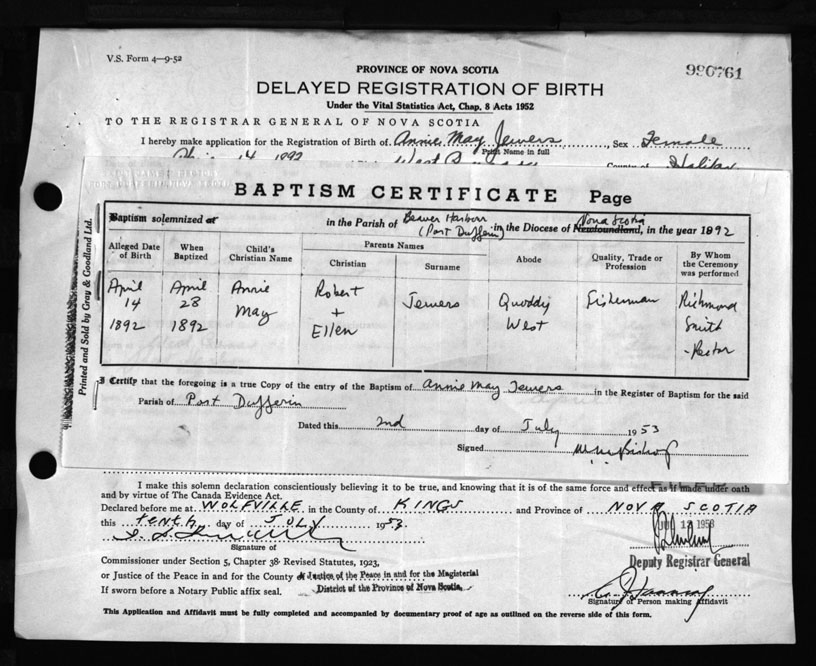 V.S. Form 4—9-52
990761
PROVINCE OF NOVA SCOTIA
DELAYED REGISTRATION OF BIRTH
Under the Vital Statistics Act, Chap. 8 Acts 1952
TO THE REGISTRAR GENERAL OF NOVA SCOTIA
I hereby make application for the Registration of Birth of Annie May Jewers, Sex Female
Print Name in full
14 1892 West County of Halifax
BAPTISM CERTIFICATE Page
Baptism solemnized at in the Parish of Beaver Harbour (Port Dufferin) in the Diocese of Newfoundland, Nova Scotia in the year 1892
Alleged Date of Birth
When Baptized
Child's Christian Name
Parents Names
Christian
Surname
Abode
Quality, Trade or Profession
By Whom the Ceremony was performed
April 14 1892
April 28 1892
Annie May
Robert + Ellen
Jewers
Quoddy West
Fisherman
Richmond Smith - Rector
I Certify that the foregoing is a true Copy of the entry of the Baptism of Annie May Jewers in the Register of Baptism for the said
Parish of Port Dufferin
Dated this 2nd day of July 1953
Signed Bishop
Printed and Sold by Gray & Goodland Ltd.
I make this solemn declaration conscientiously believing it to be true, and knowing that it is of the same force and effect as if made under oath
and by virtue of The Canada Evidence Act.
Declared before me at WOLFVILLE in the County of KINGS and Province of NOVA SCOTIA
this TENTH day of JULY 1953
Signature of
Deputy Registrar General
Commissioner under Section 5, Chapter 38 Revised Statutes, 1923,
or Justice of the Peace in and for the County of Justice of the Peace in and for the Magisterial
If sworn before a Notary Public affix seal. District of the Province of Nova Scotia.
Signature of Person making affidavit
This Application and Affidavit must be fully completed and accompanied by documentary proof of age as outlined on the reverse side of this form.